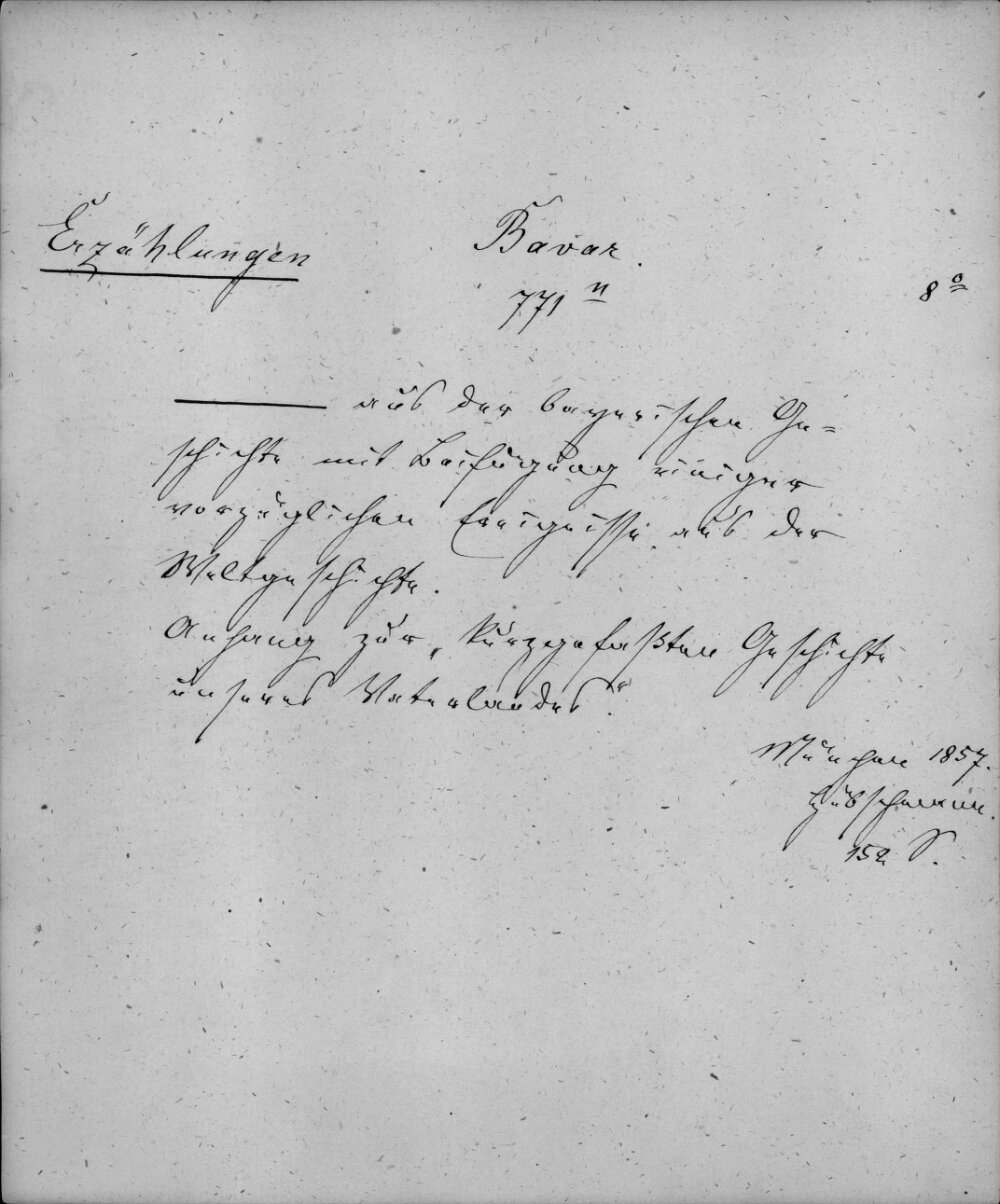 Erzählungen
Bavar.
771 n
8°
——— aus der bayerischen Ge=
schichte mit Beifügung einiger
vorzüglichen Ereignisse aus der
Weltgeschichte.
Anhang zur „kurzgefaßten Geschichte
unseres Vaterlandes“
München 1857.
Hübschmann.
152 S.